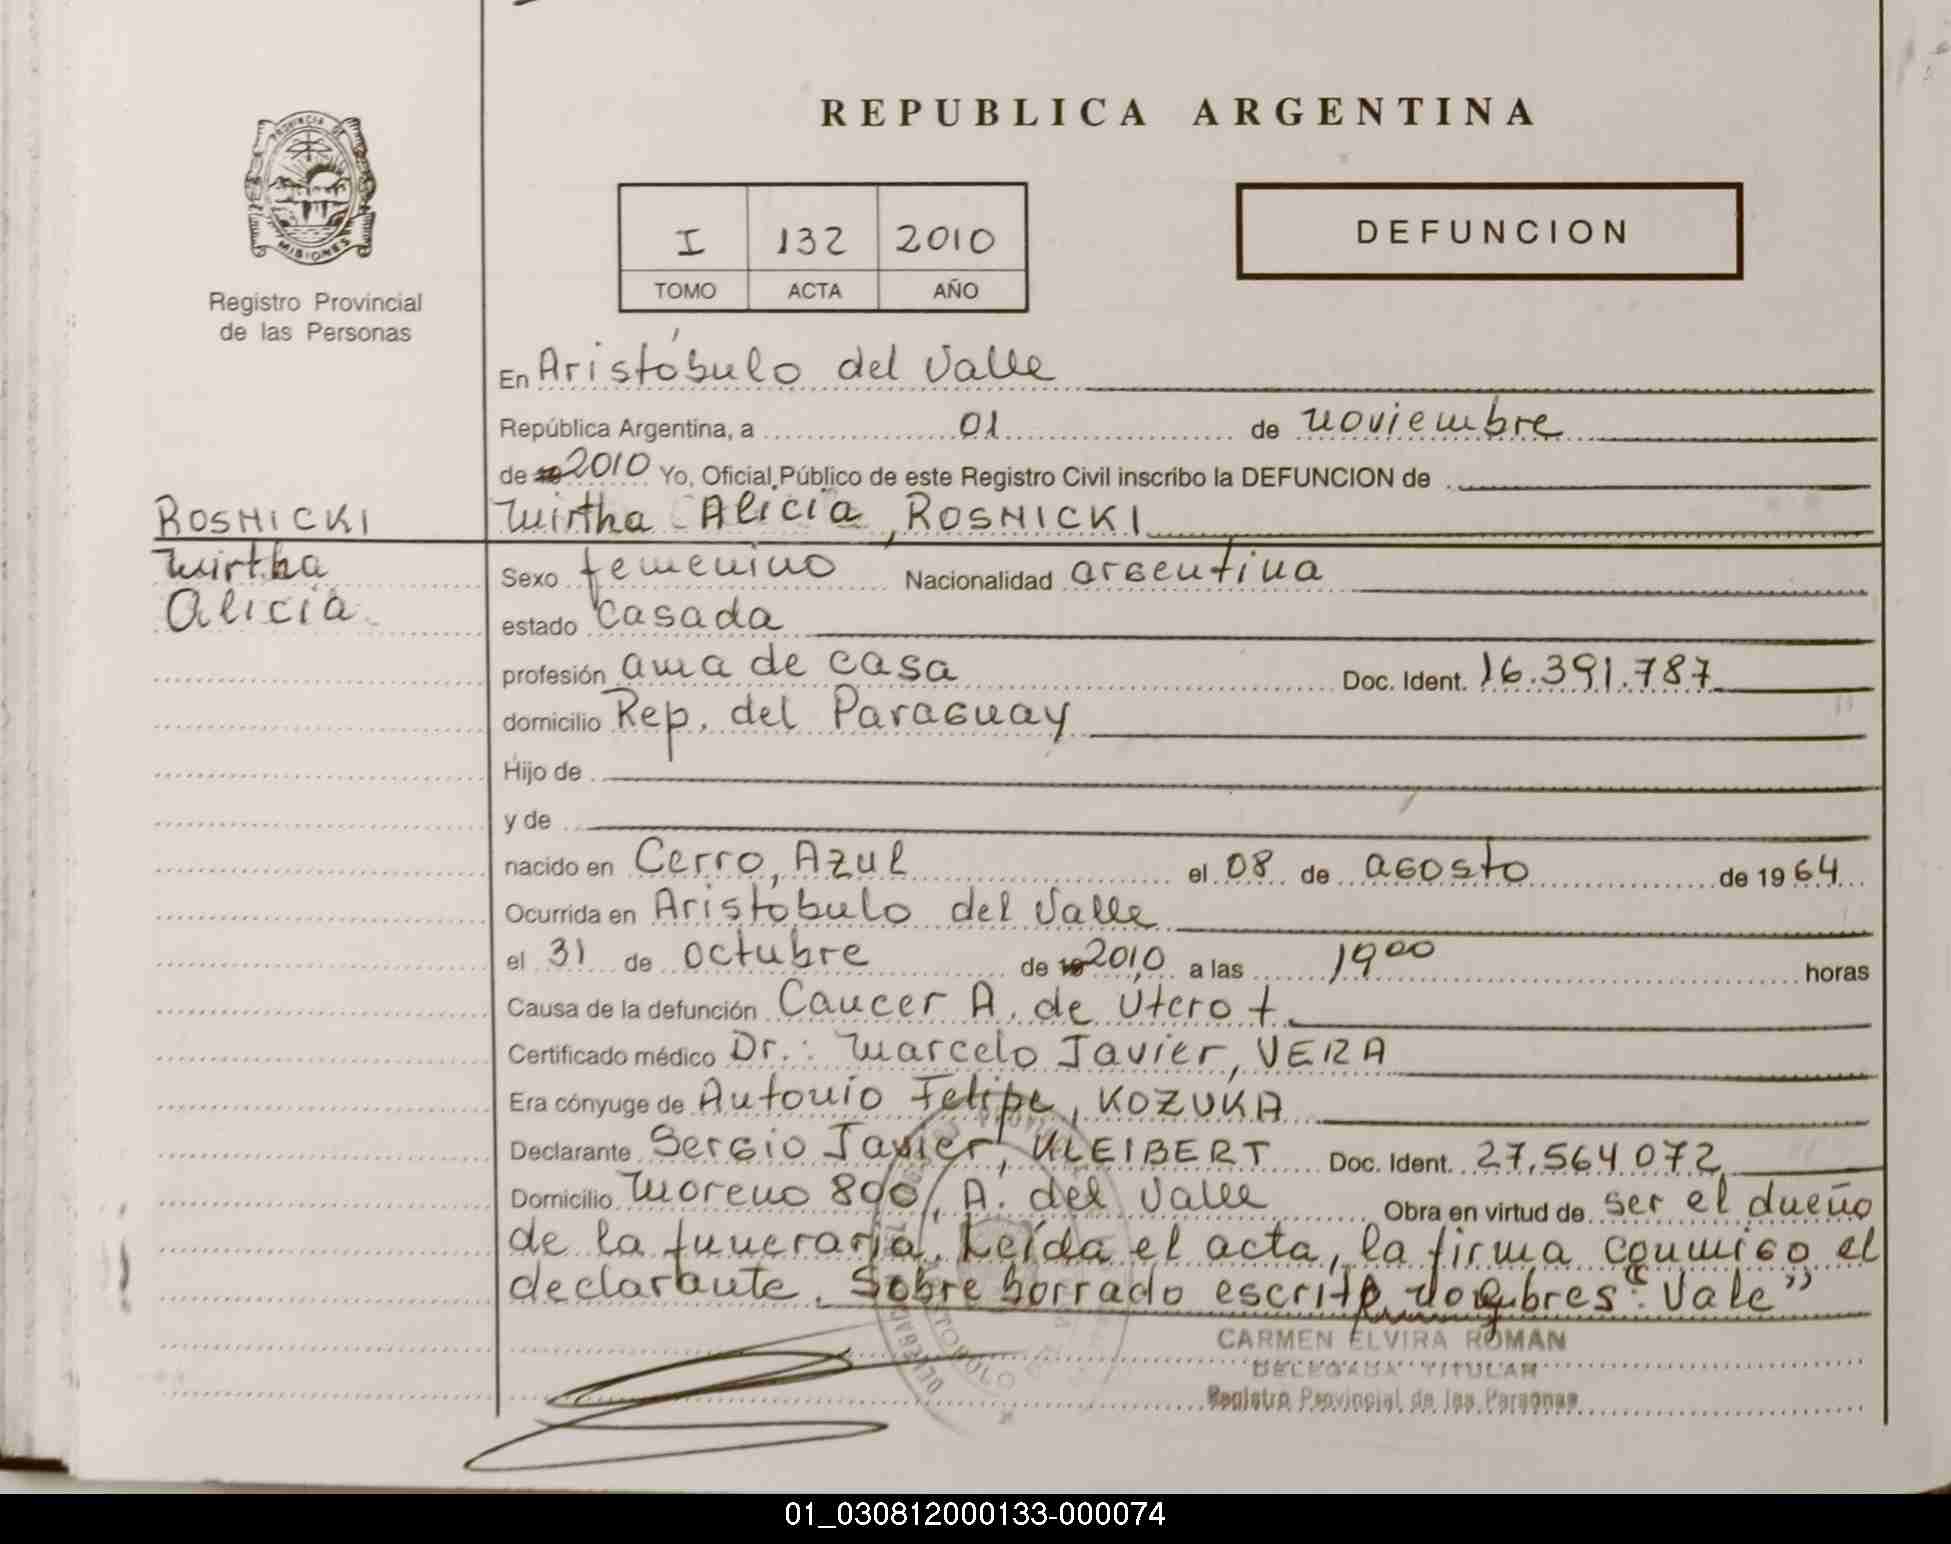 REPUBLICA ARGENTINA
PROVINCIA DE
MISIONES
Registro Provincial
de las Personas
I 132 2010
TOMO ACTA AÑO
DEFUNCION
En Aristóbulo del Valle
República Argentina, a 01 de noviembre
de 2010 Yo, Oficial Público de este Registro Civil inscribo la DEFUNCION de
ROSNICKI
Mirtha
Alicia
Mirtha Alicia, ROSNICKI
Sexo femenino Nacionalidad argentina
estado casada
profesión ama de casa Doc. Ident. 16.391.787
domicilio Rep. del Paraguay
Hijo de
y de
nacido en Cerro, Azul el 08 de agosto de 1964
Ocurrida en Aristobulo del Valle
el 31 de octubre de 2010 a las 19 00 horas
Causa de la defunción Cancer A. de Utero +
Certificado médico Dr.: Marcelo Javier, VERA
Era cónyuge de Antonio Felipe, KOZUKA
Declarante Sergio Javier, KLEIBERT Doc. Ident. 27.564.072
Domicilio Moreno 800, A. del Valle Obra en virtud de ser el dueño
de la funeraria. Leída el acta, la firma conmigo el
declarante. Sobre borrado escrito nombres: "Vale"
CARMEN ELVIRA ROMAN
DELEGADA TITULAR
Registro Provincial de las Personas
01_030812000133-000074